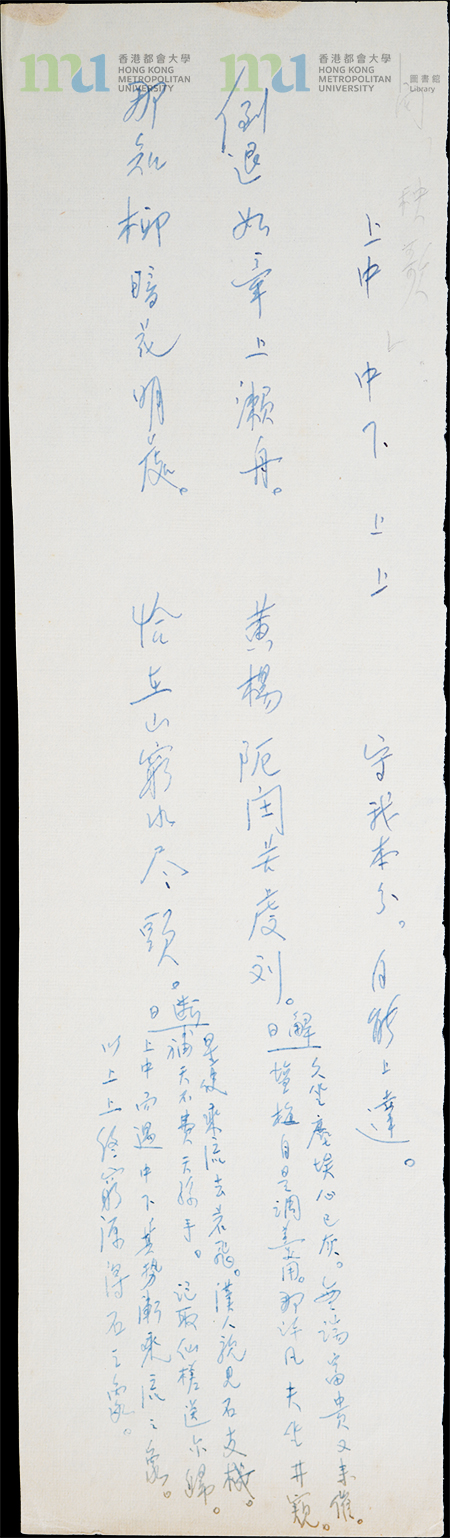 mu 香港都會大學
HONG KONG
METROPOLITAN
UNIVERSITY
mu 香港都會大學
HONG KONG
METROPOLITAN
UNIVERSITY
圖書館
Library
上中 中下 上上 守我本分。自能上達。
倒退如牽上瀨舟。 黃楊阨閏苦虔刘。
解曰 久坐塵埃心已灰。無端富貴又来催。
塩梅自是調羹用。那許凡夫坐井窺。
那知柳暗花明處。 恰在山窮水尽頭。
断曰 星使乘流去若飛。漢人親見石支機。
補天不費天孫手。記取仙槎送尔歸。
上中而遇中下其势漸乘流之象。
以上上終窮源得石之象。